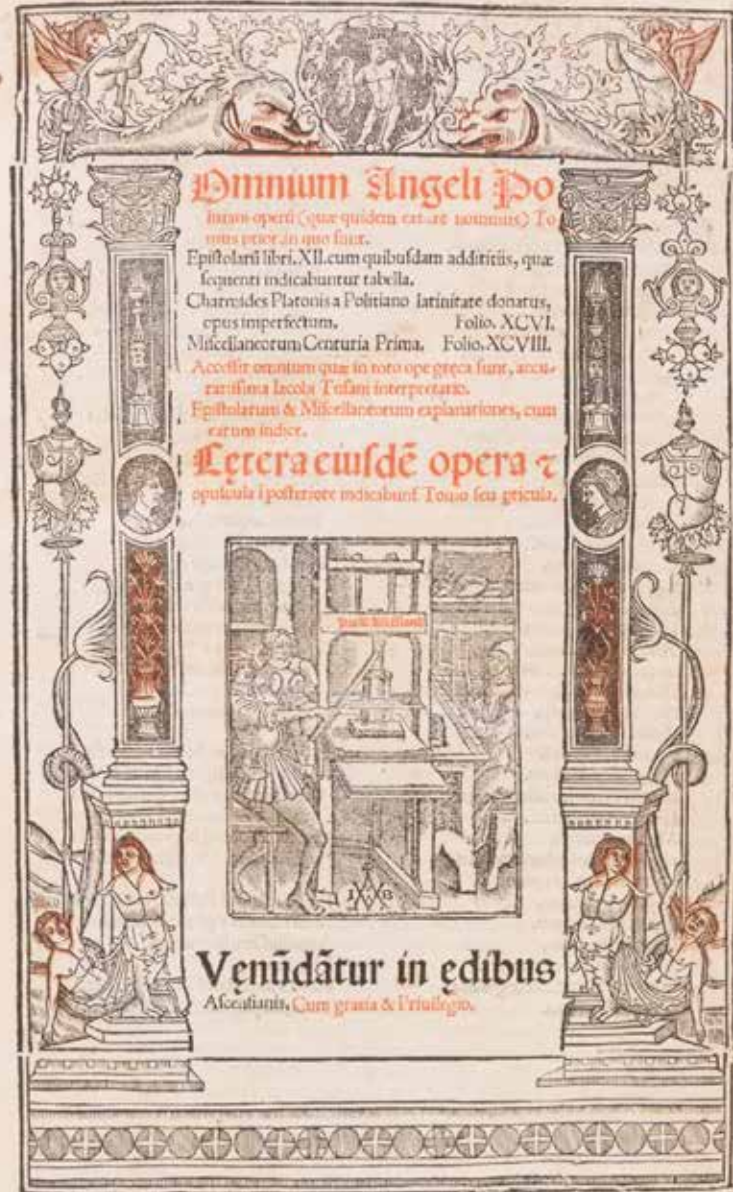 Omnium Angeli Po
litiani operū (quæ quidem extare nouimus) To
mus prior, in quo sunt.
Epistolarū libri. XII. cum quibusdam additiis, quæ
sequenti indicabuntur tabella.
Charmides Platonis a Politiano latinitate donatus,
opus imperfectum. Folio. XCVI.
Miscellaneorum Centuria Prima. Folio. XCVIII.
Accessit omnium quæ in toto ope gręca sunt, accu-
ratissima Iacobi Tusani interpretatio.
Epistolarum & Miscellaneorum explanationes, cum
earum indice.
Cętera eiusdē opera ⁊
opuscula ī posteriore indicabunt Tomo seu
Prelū Ascēsianū
I B
Vęnūdātur in ędibus
Ascensianis. Cum gratia & Priuilegio.